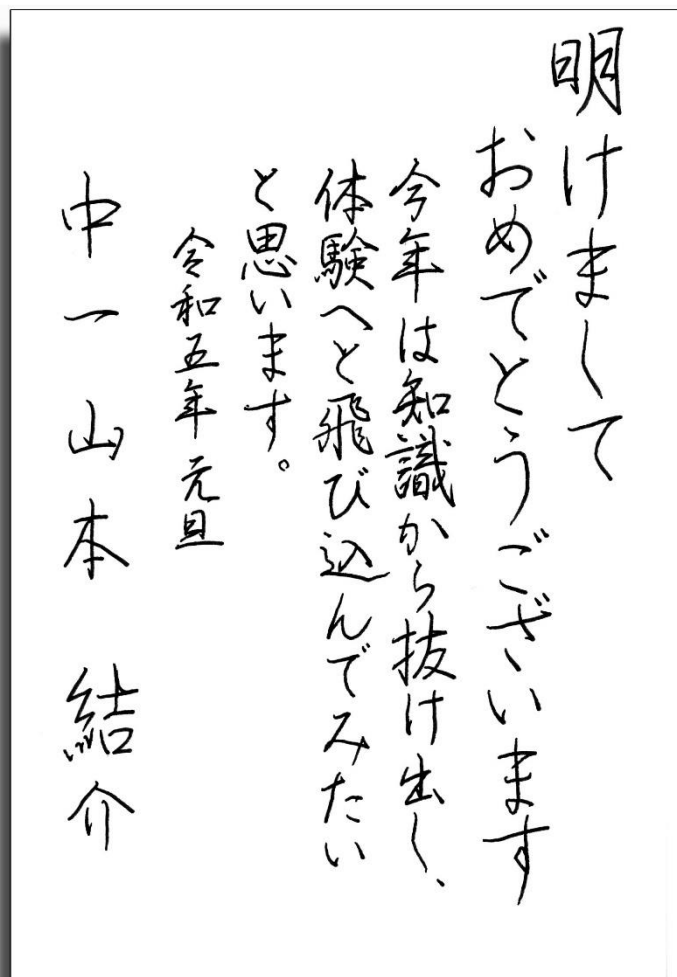 明けまして
おめでとうございます
今年は知識から抜け出し、
体験へと飛び込んでみたい
と思います。
令和五年 元旦
中一 山本 結介